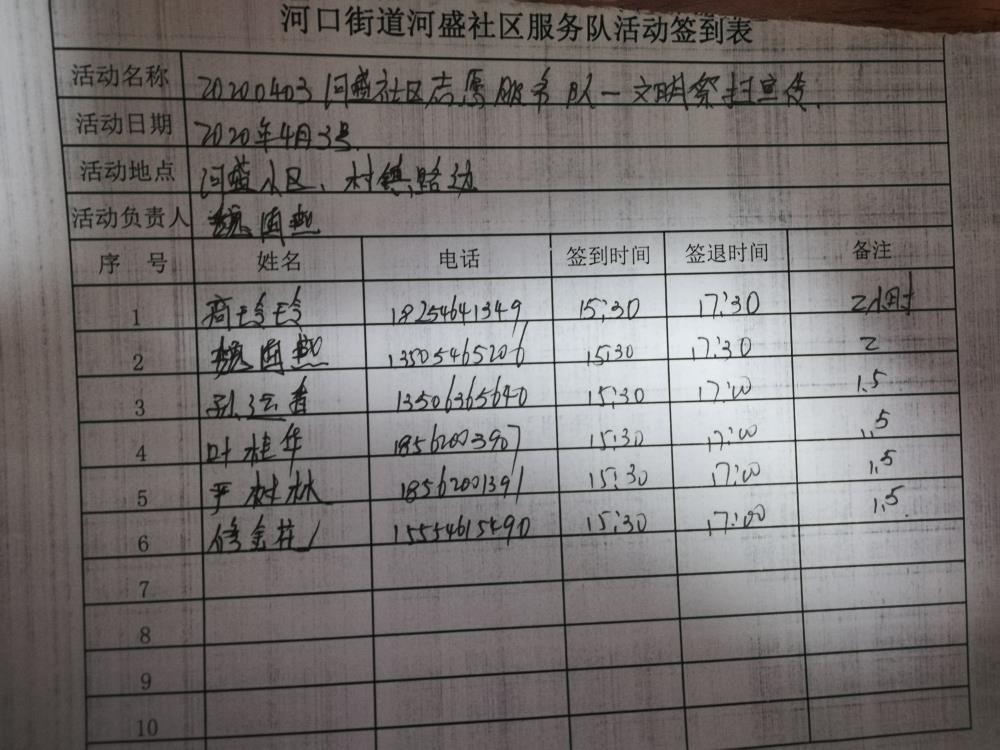 河口街道河盛社区服务队活动签到表
活动名称 20200403河盛社区志愿服务队一文明祭扫宣传
活动日期 2020年4月3号
活动地点 河盛小区、村镇路边
活动负责人
序 号 姓名 电话 签到时间 签退时间 备注
1 商玲玲 18254641349 15:30 17:30 2小时
2 13505465206 15:30 17:30 2
3 13506365640 15:30 17:00 1.5
4 叶桂华 18562003907 15:30 17:00 1.5
5 严树林 18562001391 15:30 17:00 1.5
6 15554615490 15:30 17:00 1.5
7
8
9
10